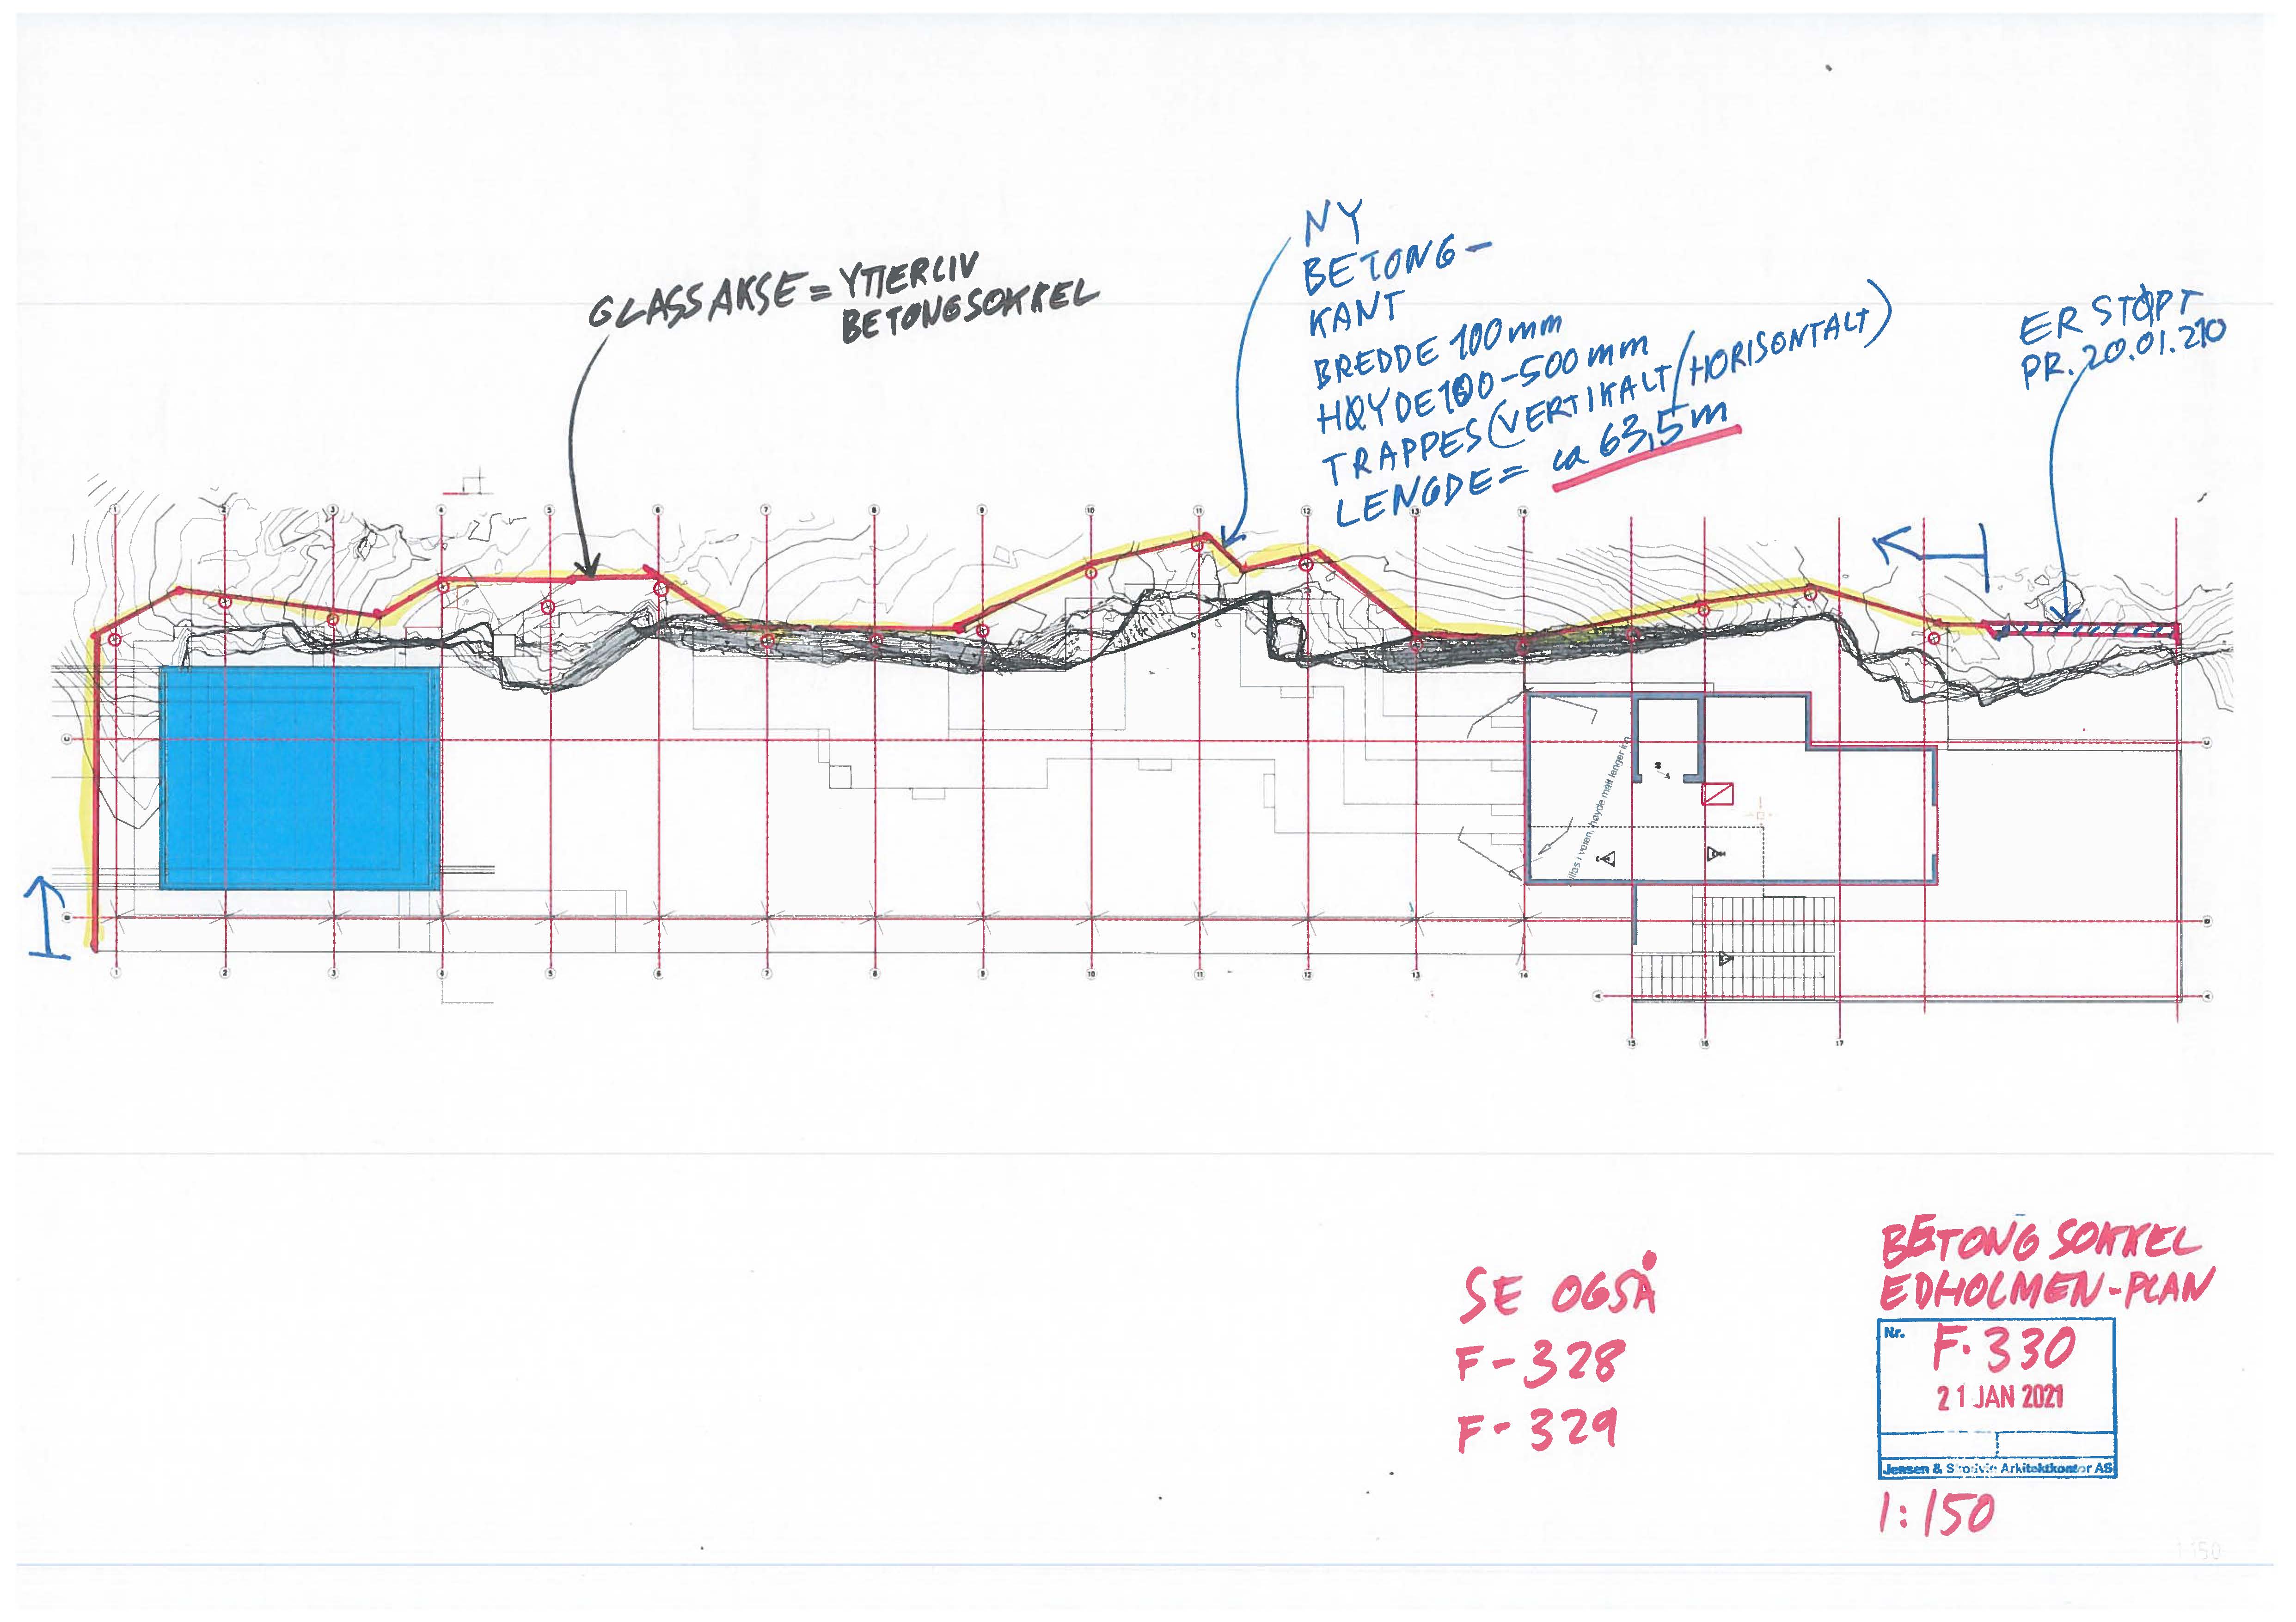 GLASSAKSE = YTTERLIV
BETONGSOKKEL
NY
BETONG-
KANT
BREDDE 100mm
HØYDE 100-500mm
TRAPPES (VERTIKALT/HORISONTALT)
LENGDE = ca 63,5m
ER STØPT
PR. 20.01.210
1 2 3 4 5 6 7 8 9 10 11 12 13 14
C C
høyde målt lenger inn
B B
1 2 3 4 5 6 7 8 9 10 11 12 13 14
A A
15 16 17
SE OGSÅ
F-328
F-329
BETONG SOKKEL
EDHOLMEN-PLAN
Nr. F.330
21 JAN 2021
Jensen & Skodvin Arkitektkontor AS
1:150
1:150